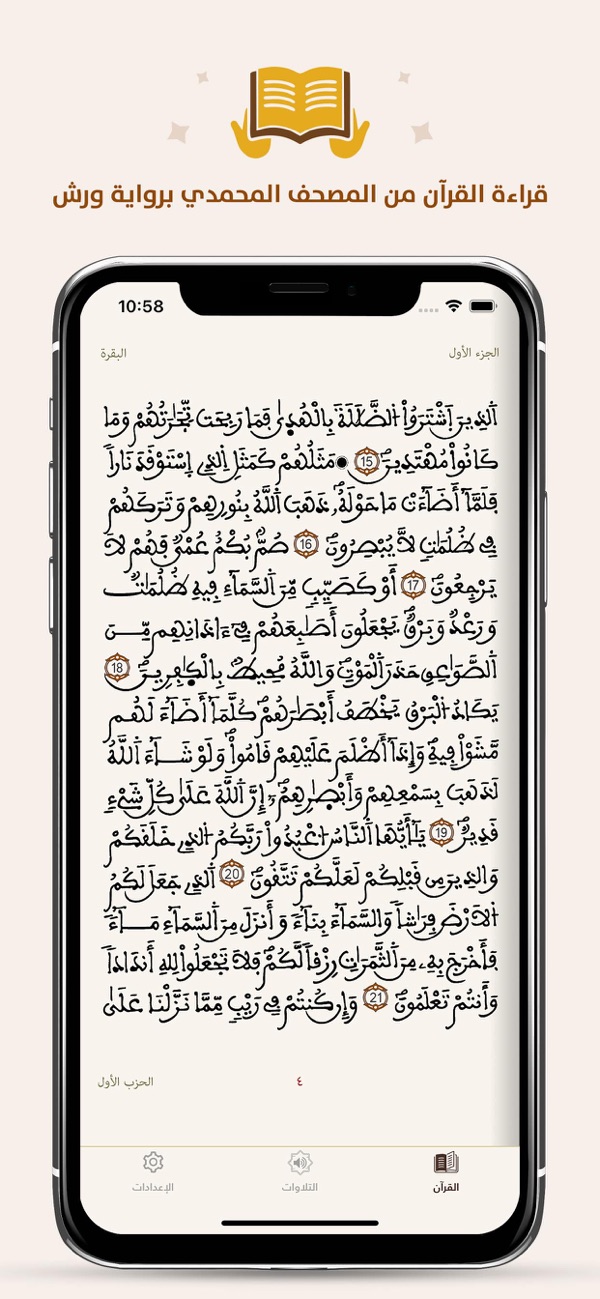 قراءة القرآن من المصحف المحمدي برواية ورش
10:58
الجزء الأول
البقرة
اَ۬لذِينَ اَ۪شْتَرَوُاْ اُ۬لضَّلَٰلَةَ بِالْهُد۪ىٰ فَمَا رَبِحَت تِّجَٰرَتُهُمْ وَمَا
كَانُواْ مُهْتَدِينَۖ 15 مَثَلُهُمْ كَمَثَلِ اِ۬لذِے اِ۪سْتَوْقَدَ نَاراٗ
فَلَمَّآ أَضَآءَتْ مَا حَوْلَهُۥ ذَهَبَ اَ۬للَّهُ بِنُورِهِمْ وَتَرَكَهُمْ
فِے ظُلُمَٰتٖ لَّا يُبْصِرُونَۖ 16 صُمُّۢ بُكْمٌ عُمْيٞ فَهُمْ لَا
يَرْجِعُونَۖ 17 أَوْ كَصَيِّبٖ مِّنَ اَ۬لسَّمَآءِ فِيهِ ظُلُمَٰتٞ
وَرَعْدٞ وَبَرْقٞ يَجْعَلُونَ أَصَٰبِعَهُمْ فِےٓ ءَاذَانِهِم مِّنَ
اَ۬لصَّوَٰعِقِ حَذَرَ اَ۬لْمَوْتِۖ وَاللَّهُ مُحِيطُۢ بِالْكٰ۪فِرِينَۖ 18
يَكَادُ اُ۬لْبَرْقُ يَخْطَفُ أَبْصَٰرَهُمْ كُلَّمَآ أَضَآءَ لَهُم
مَّشَوْاْ فِيهِۖ وَإِذَآ أَظْلَمَ عَلَيْهِمْ قَامُواْۖ وَلَوْ شَآءَ اَ۬للَّهُ
لَذَهَبَ بِسَمْعِهِمْ وَأَبْصٰ۪رِهِمُۥٓۖ إِنَّ اَ۬للَّهَ عَلَىٰ كُلِّ شَےْءٖ
قَدِيرٞۖ 19 يَٰٓأَيُّهَا اَ۬لنَّاسُ اُ۟عْبُدُواْ رَبَّكُمُ اُ۬لذِے خَلَقَكُمْ
وَالذِينَ مِن قَبْلِكُمْ لَعَلَّكُمْ تَتَّقُونَۖ 20 اَ۬لذِے جَعَلَ لَكُمُ
اُ۬لَارْضَ فِرَٰشاٗ وَالسَّمَآءَ بِنَآءٗ وَأَنزَلَ مِنَ اَ۬لسَّمَآءِ مَآءٗ
فَأَخْرَجَ بِهِۦ مِنَ اَ۬لثَّمَرَٰتِ رِزْقاٗ لَّكُمْۖ فَلَا تَجْعَلُواْ لِلهِ أَندَاداٗ
وَأَنتُمْ تَعْلَمُونَۖ 21 وَإِن كُنتُمْ فِے رَيْبٖ مِّمَّا نَزَّلْنَا عَلَىٰ
٤
الحزب الأول
القرآن
التلاوات
الإعدادات